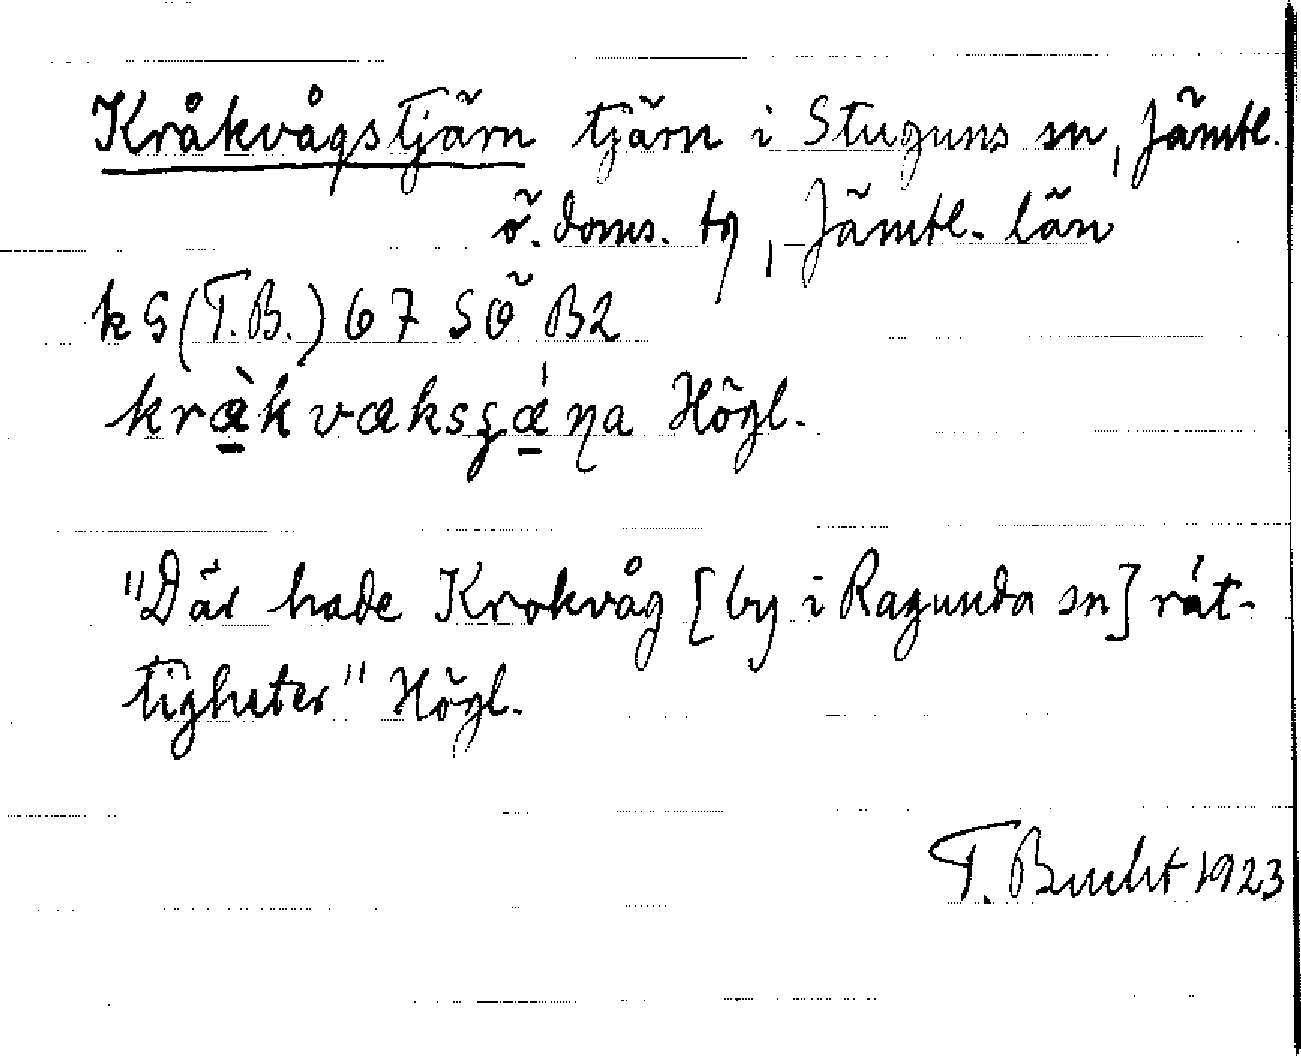 Kråkvågstjärn tjärn i Stuguns sn, Jämtl.
ö. doms. tg, Jämtl. län
k G (T.B.) 67 SÖ B2
kræ̀kvæksgǽŋa Högl.
"Där hade Krokvåg [by i Ragunda sn] rät-
tigheter" Högl.
T. Bucht 1923